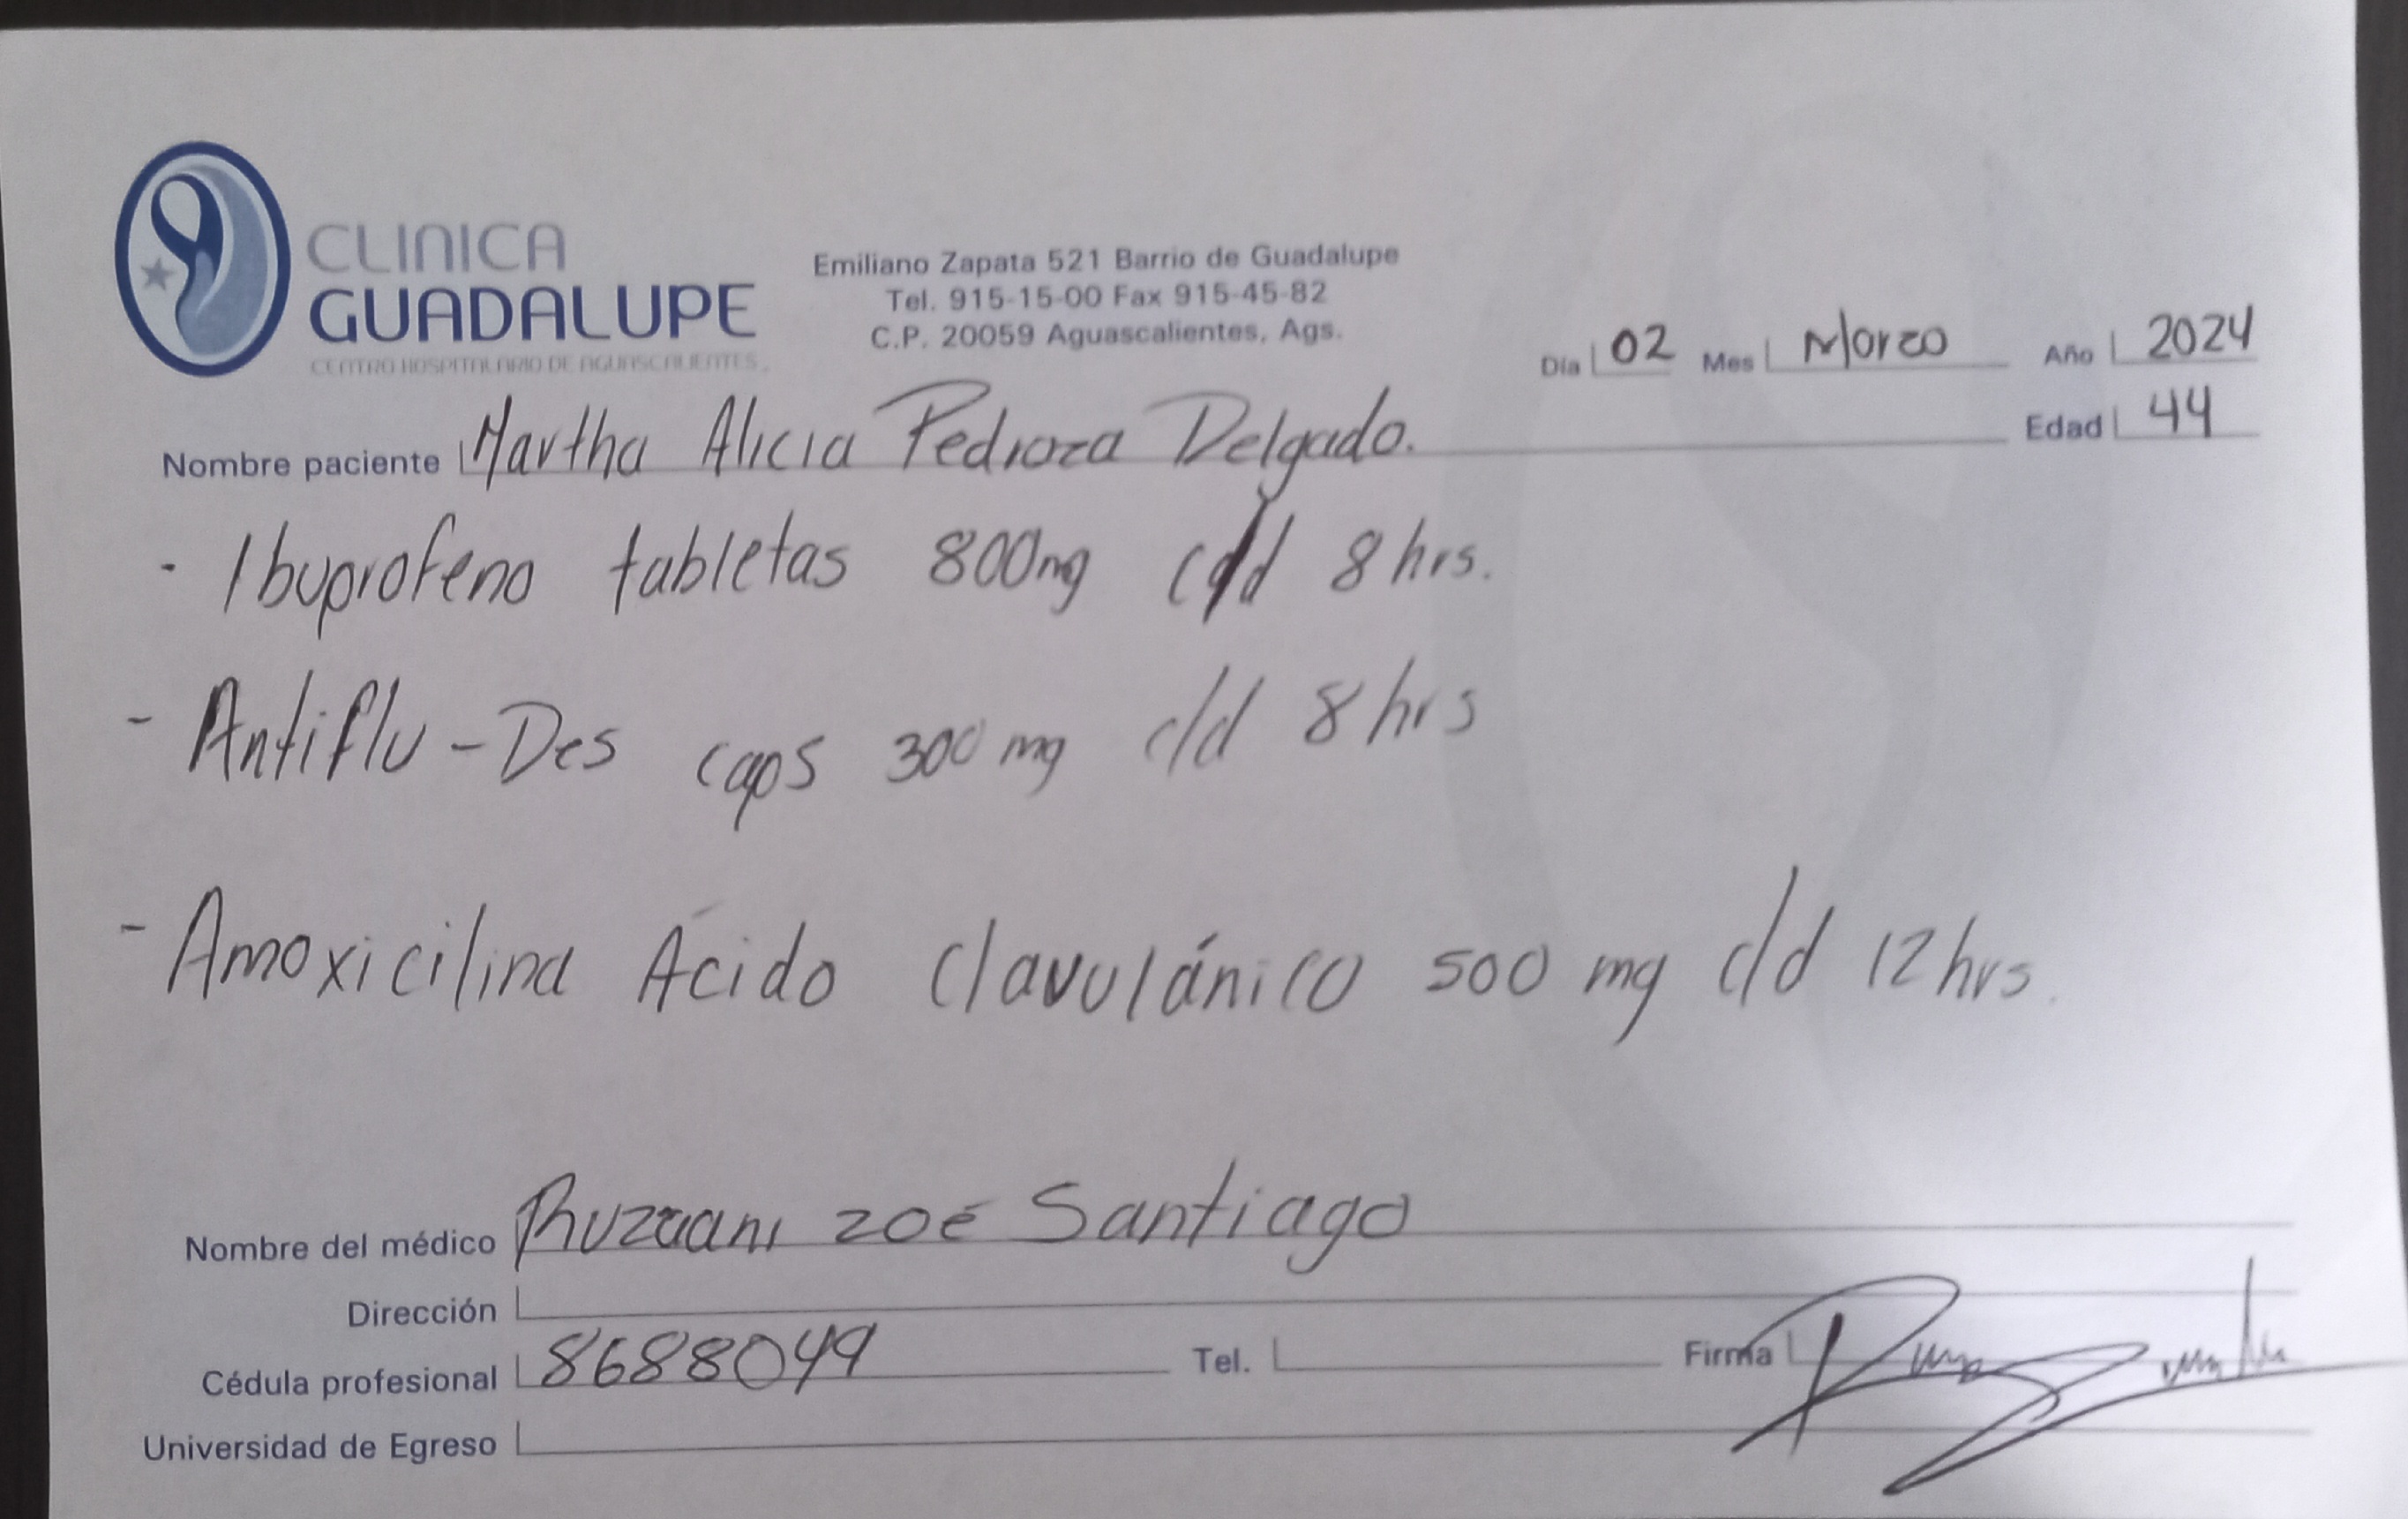 CLINICA
GUADALUPE
CENTRO HOSPITALARIO DE AGUASCALIENTES.
Emiliano Zapata 521 Barrio de Guadalupe
Tel. 915-15-00 Fax 915-45-82
C.P. 20059 Aguascalientes, Ags.
Día 02 Mes Marzo Año 2024
Edad 44
Nombre paciente Martha Alicia Pedroza Delgado.
- Ibuprofeno tabletas 800mg c/d 8 hrs.
- Antiflu-Des caps 300 mg c/d 8 hrs
- Amoxicilina Ácido Clavulánico 500 mg c/d 12 hrs.
Nombre del médico Zoé Santiago
Dirección
Cédula profesional 8688049 Tel. Firma
Universidad de Egreso